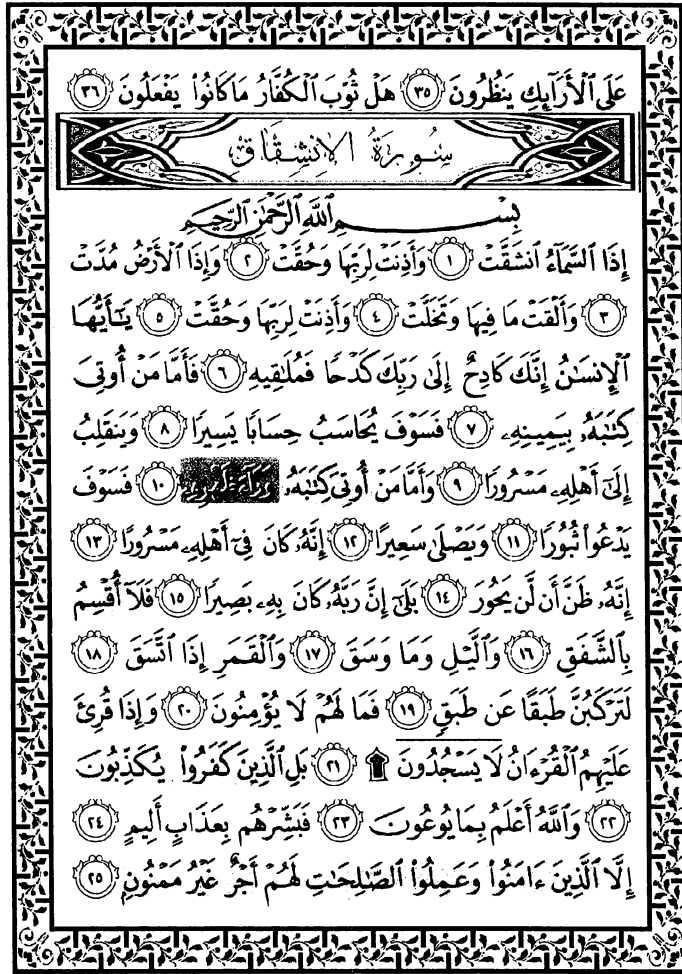 عَلَى ٱلْأَرَآئِكِ يَنظُرُونَ ٣٥ هَلْ ثُوِّبَ ٱلْكُفَّارُ مَا كَانُوا۟ يَفْعَلُونَ ٣٦
سُورَةُ الإِنشِقَاقِ
بِسْمِ ٱللَّهِ ٱلرَّحْمَٰنِ ٱلرَّحِيمِ
إِذَا ٱلسَّمَآءُ ٱنشَقَّتْ ١ وَأَذِنَتْ لِرَبِّهَا وَحُقَّتْ ٢ وَإِذَا ٱلْأَرْضُ مُدَّتْ
٣ وَأَلْقَتْ مَا فِيهَا وَتَخَلَّتْ ٤ وَأَذِنَتْ لِرَبِّهَا وَحُقَّتْ ٥ يَٰٓأَيُّهَا
ٱلْإِنسَٰنُ إِنَّكَ كَادِحٌ إِلَىٰ رَبِّكَ كَدْحًا فَمُلَٰقِيهِ ٦ فَأَمَّا مَنْ أُوتِىَ
كِتَٰبَهُۥ بِيَمِينِهِۦ ٧ فَسَوْفَ يُحَاسَبُ حِسَابًا يَسِيرًا ٨ وَيَنقَلِبُ
إِلَىٰٓ أَهْلِهِۦ مَسْرُورًا ٩ وَأَمَّا مَنْ أُوتِىَ كِتَٰبَهُۥ وَرَآءَ ظَهْرِهِۦ ١٠ فَسَوْفَ
يَدْعُوا۟ ثُبُورًا ١١ وَيَصْلَىٰ سَعِيرًا ١٢ إِنَّهُۥ كَانَ فِىٓ أَهْلِهِۦ مَسْرُورًا ١٣
إِنَّهُۥ ظَنَّ أَن لَّن يَحُورَ ١٤ بَلَىٰٓ إِنَّ رَبَّهُۥ كَانَ بِهِۦ بَصِيرًا ١٥ فَلَآ أُقْسِمُ
بِٱلشَّفَقِ ١٦ وَٱلَّيْلِ وَمَا وَسَقَ ١٧ وَٱلْقَمَرِ إِذَا ٱتَّسَقَ ١٨
لَتَرْكَبُنَّ طَبَقًا عَن طَبَقٍ ١٩ فَمَا لَهُمْ لَا يُؤْمِنُونَ ٢٠ وَإِذَا قُرِئَ
عَلَيْهِمُ ٱلْقُرْءَانُ لَا يَسْجُدُونَ ۩ ٢١ بَلِ ٱلَّذِينَ كَفَرُوا۟ يُكَذِّبُونَ
٢٢ وَٱللَّهُ أَعْلَمُ بِمَا يُوعُونَ ٢٣ فَبَشِّرْهُم بِعَذَابٍ أَلِيمٍ ٢٤
إِلَّا ٱلَّذِينَ ءَامَنُوا۟ وَعَمِلُوا۟ ٱلصَّٰلِحَٰتِ لَهُمْ أَجْرٌ غَيْرُ مَمْنُونٍۭ ٢٥